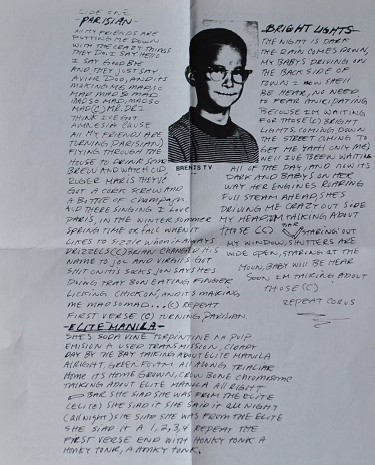 SIDE ONE
PARISIAN-
All MY FRIENDS ARE
PUTTING ME DOWN
WITH THE CRAZY THINGS
THEY DO. I SAY HELLO
I SAY GOODBYE
AND THEY JUST SAY
MAKING ME, MADSO
MAD MADSO MAD
MADSO MAD, MADSO
MAD (C) MR. DRE
THINK I'VE GOT
AMNESIA CAUSE
All MY FRIENDS ARE
TURNING PARISIAN)
FLYING THROUGH THE
HOUSE TO DRINK SOME
BREW AND WATCH OLD
ROGER MARIS THEYVE
GOT A CORK SCREW AND
A BOTTLE OF CHAMPAIN
AND THERE SINGING I LOVE
PARIS, IN THE WINTER, SUMMER
SPRING TIME OR FALL WHEN IT
LIKES TO SIZZLE WHEN IT ALWAYS
DRIZZELS (C) BRIAN CHANGED HIS
NAME TO JOE AND VIRGIL'S GOT
SHIT ON HIS SOCKS JON SAYS HES
DOING TRAY BON EATING FINGER
LICKING CHICKON, AND ITS MAKING
ME MADSOMAD...(C) REPEAT
FIRST VERSE (C) TURNING PARISIAN.
ELITE MANILA-
SHE'S SODA VINE TURPINTINE NA PULP
EMISION A USED TRANSMISSION, CLEADY
DAY BY THE BAY TALKING ABOUT ELITE MANULA
ALRIGHT, GREEN FOAM All ALONG
HOME ITS HOME GROWN, CROW BONE CHROMOSOME
TALKING ABOUT ELITE MANILA All RIGHT
SHE SIAD SHE WAS FROM THE ELITE
(ELITE) SHE SAID IT SHE SAID IT All NIGHT
(All NIGHT) SHE SIAD SHE WAS FROM THE ELITE
SHE SIAD IT A 1, 2, 3, 4 REPEAT THE
FIRST VERSE END WITH HONKY TONK A
HONKY TONK, A HONKY TONK.
BRENTS TV
BRIGHT LIGHTS
THE NIGHT IS DARK
THE RAIN COMES DOWN,
MY BABYS DRIVING ON
THE BACK SIDE OF
TOWN I NOW SHELL
BE HEAR, NO NEED
TO FEAR ANICIPATING
BECOUSE IM WAITING
FOR THOSE (C) BRIGHT
LIGHTS, COMING DOWN
THE STREET COMING TO
GET ME YAH (ONLY ME)
WELL IVE BEEN WAITING
All OF THE DAY AND NOW ITS
DARK AND BABYS ON HER
WAY HER ENGINES RUNNING
FULL STEAM AHEAD SHE'S
DRIVING ME CRAZY OUT SIDE
MY HEAD IM TALKING ABOUT
THOSE (C) STARING OUT
MY WINDOW, SHUTTERS ARE
WIDE OPEN, STARING AT THE
MOUN, BABY WILL BE HEAR
SOON IM TALKING ABOUT
THOSE (C)
REPEAT CORUS